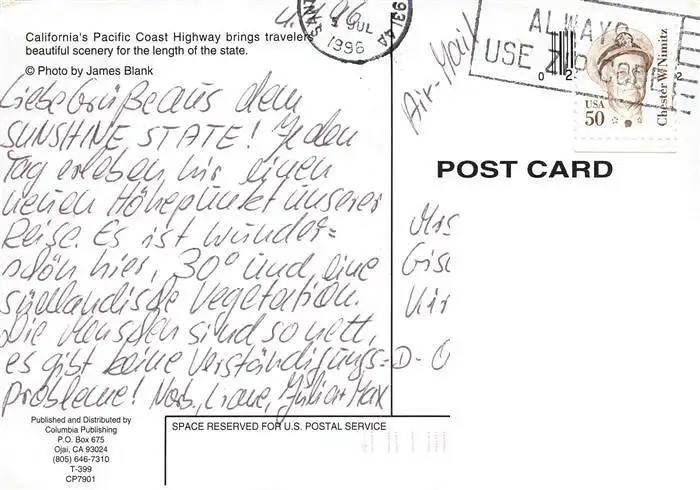 4.7.96
California's Pacific Coast Highway brings travelers
beautiful scenery for the length of the state.
© Photo by James Blank
Liebe Grüße aus dem
SUNSHINE STATE! Jeden
Tag erleben wir einen
neuen Höhepunkt unserer
Reise. Es ist wunder=
schön hier, 30° und eine
südländische Vegetation.
Die Menschen sind so nett,
es gibt keine Verständigungs=
probleme! Norb., Liane, Julia + Max
Published and Distributed by
Columbia Publishing
P.O. Box 675
Ojai, CA 93024
(805) 646-7310
T-399
CP7901
SAN
5 JUL
1996
931
ALWAYS
USE ZIP CODE
USA
50
Chester W. Nimitz
Air-Mail
POST CARD
Mrs
Gise
Kir
D-
SPACE RESERVED FOR U.S. POSTAL SERVICE